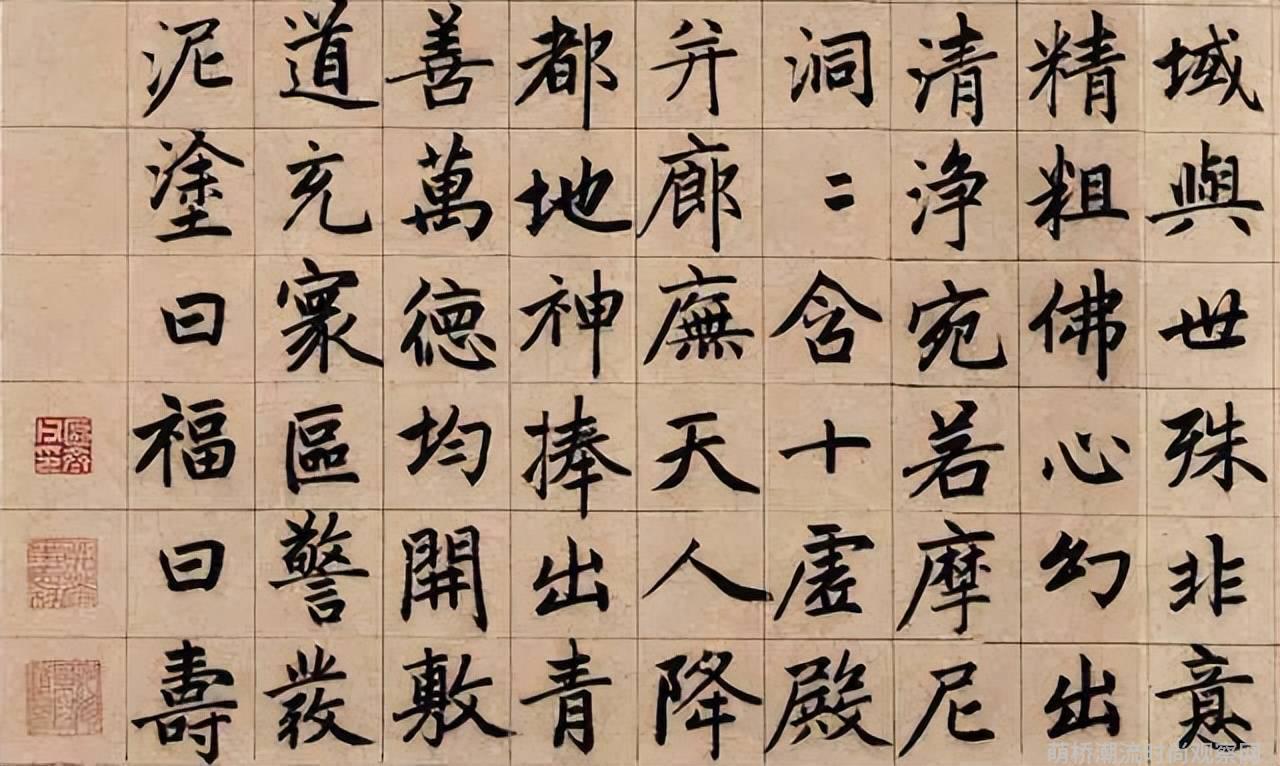 域與世殊非意
精粗佛心幻出
清淨宛若摩尼
洞二含十虛殿
并廊廡天人降
都地神捧出青
善萬德均開敷
道充寰區警發
泥塗曰福曰壽
萌桥潮流时尚观察网